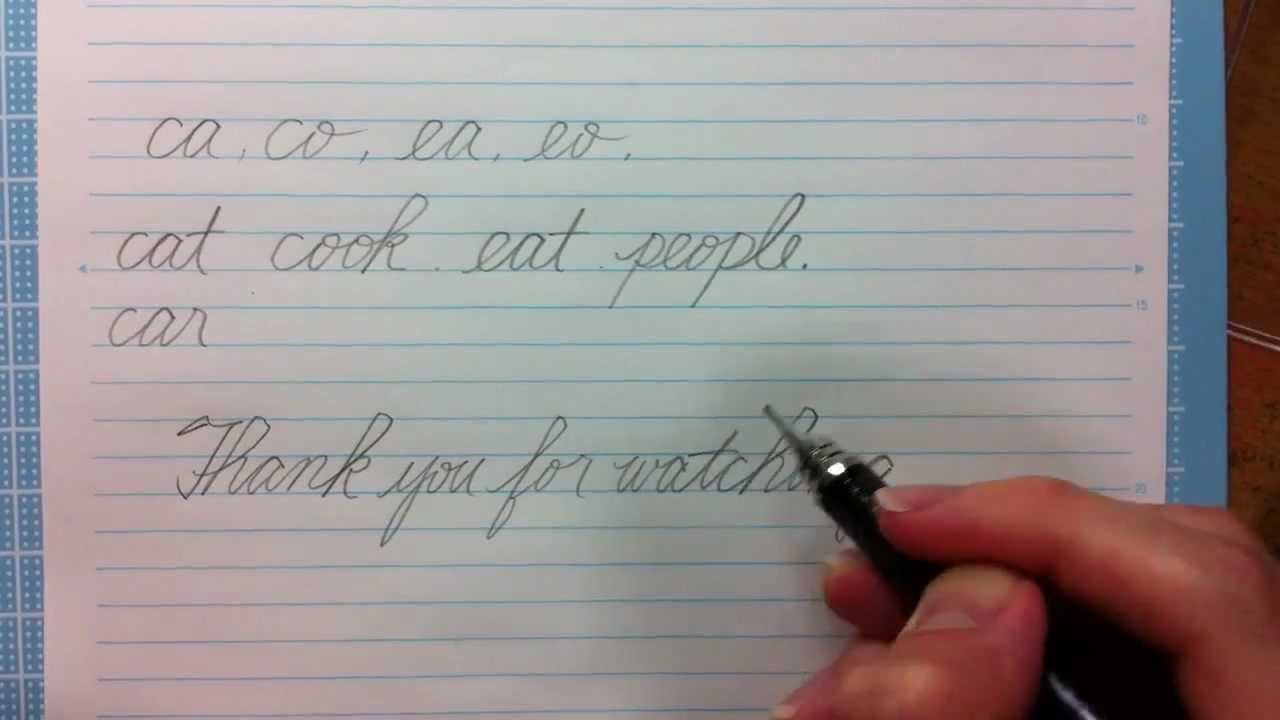 ca, co, ea, eo.
cat cook eat people.
car
Thank you for watching
10
15
20